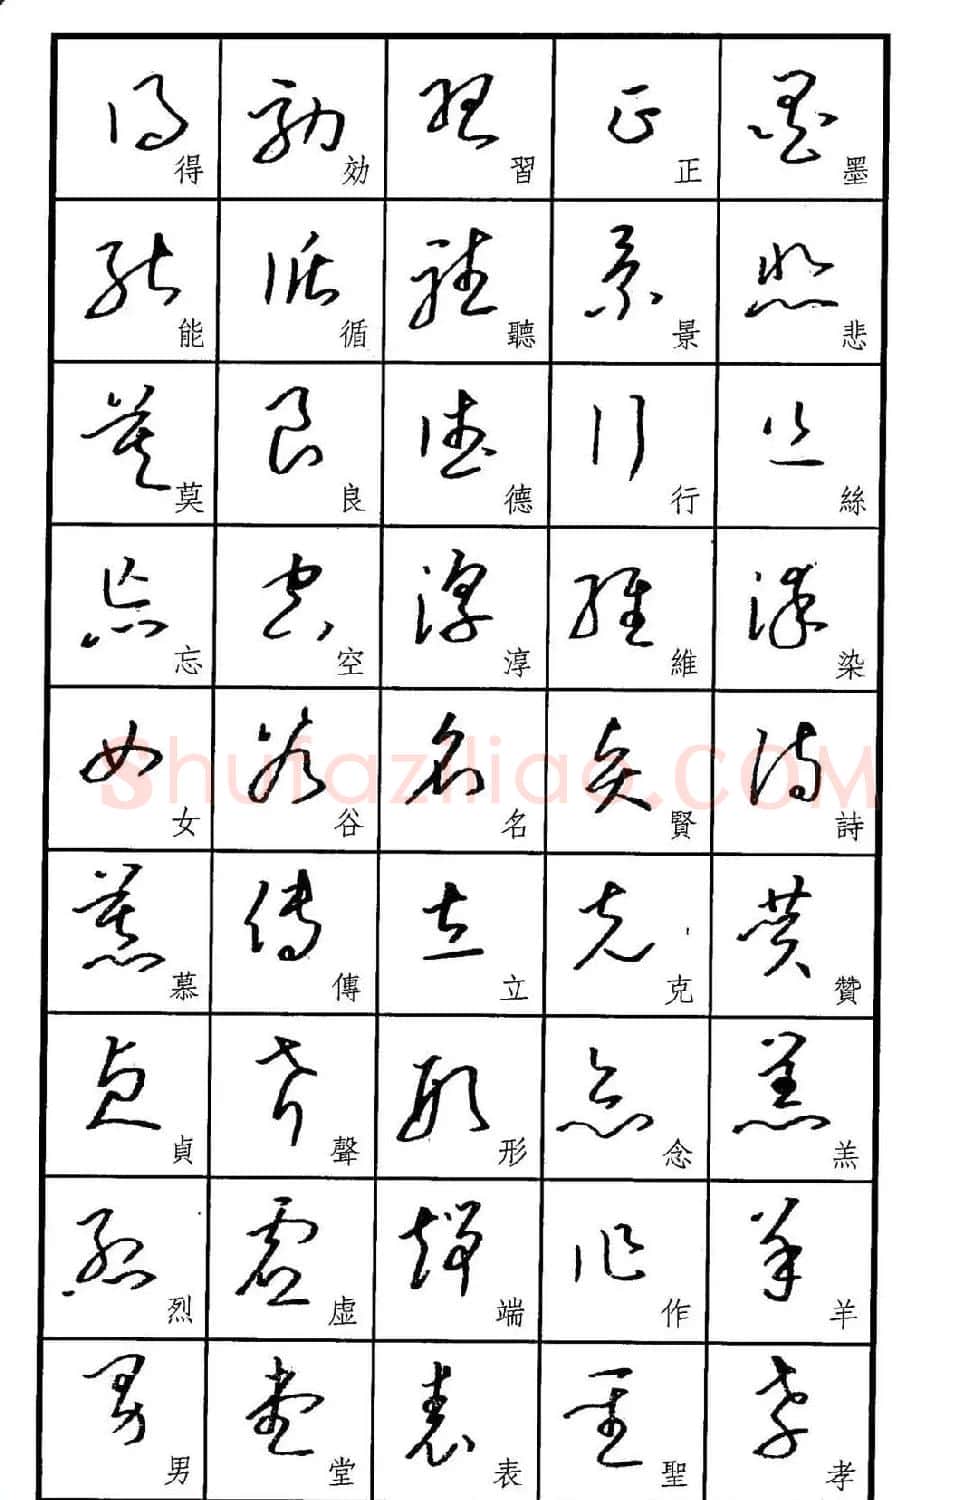 墨悲絲染詩贊羔羊孝
正景行維賢克念作聖
習聽德淳名立形端表
効循良空谷傳聲虚堂
得能莫忘女慕貞烈男
Shufaziliao.COM